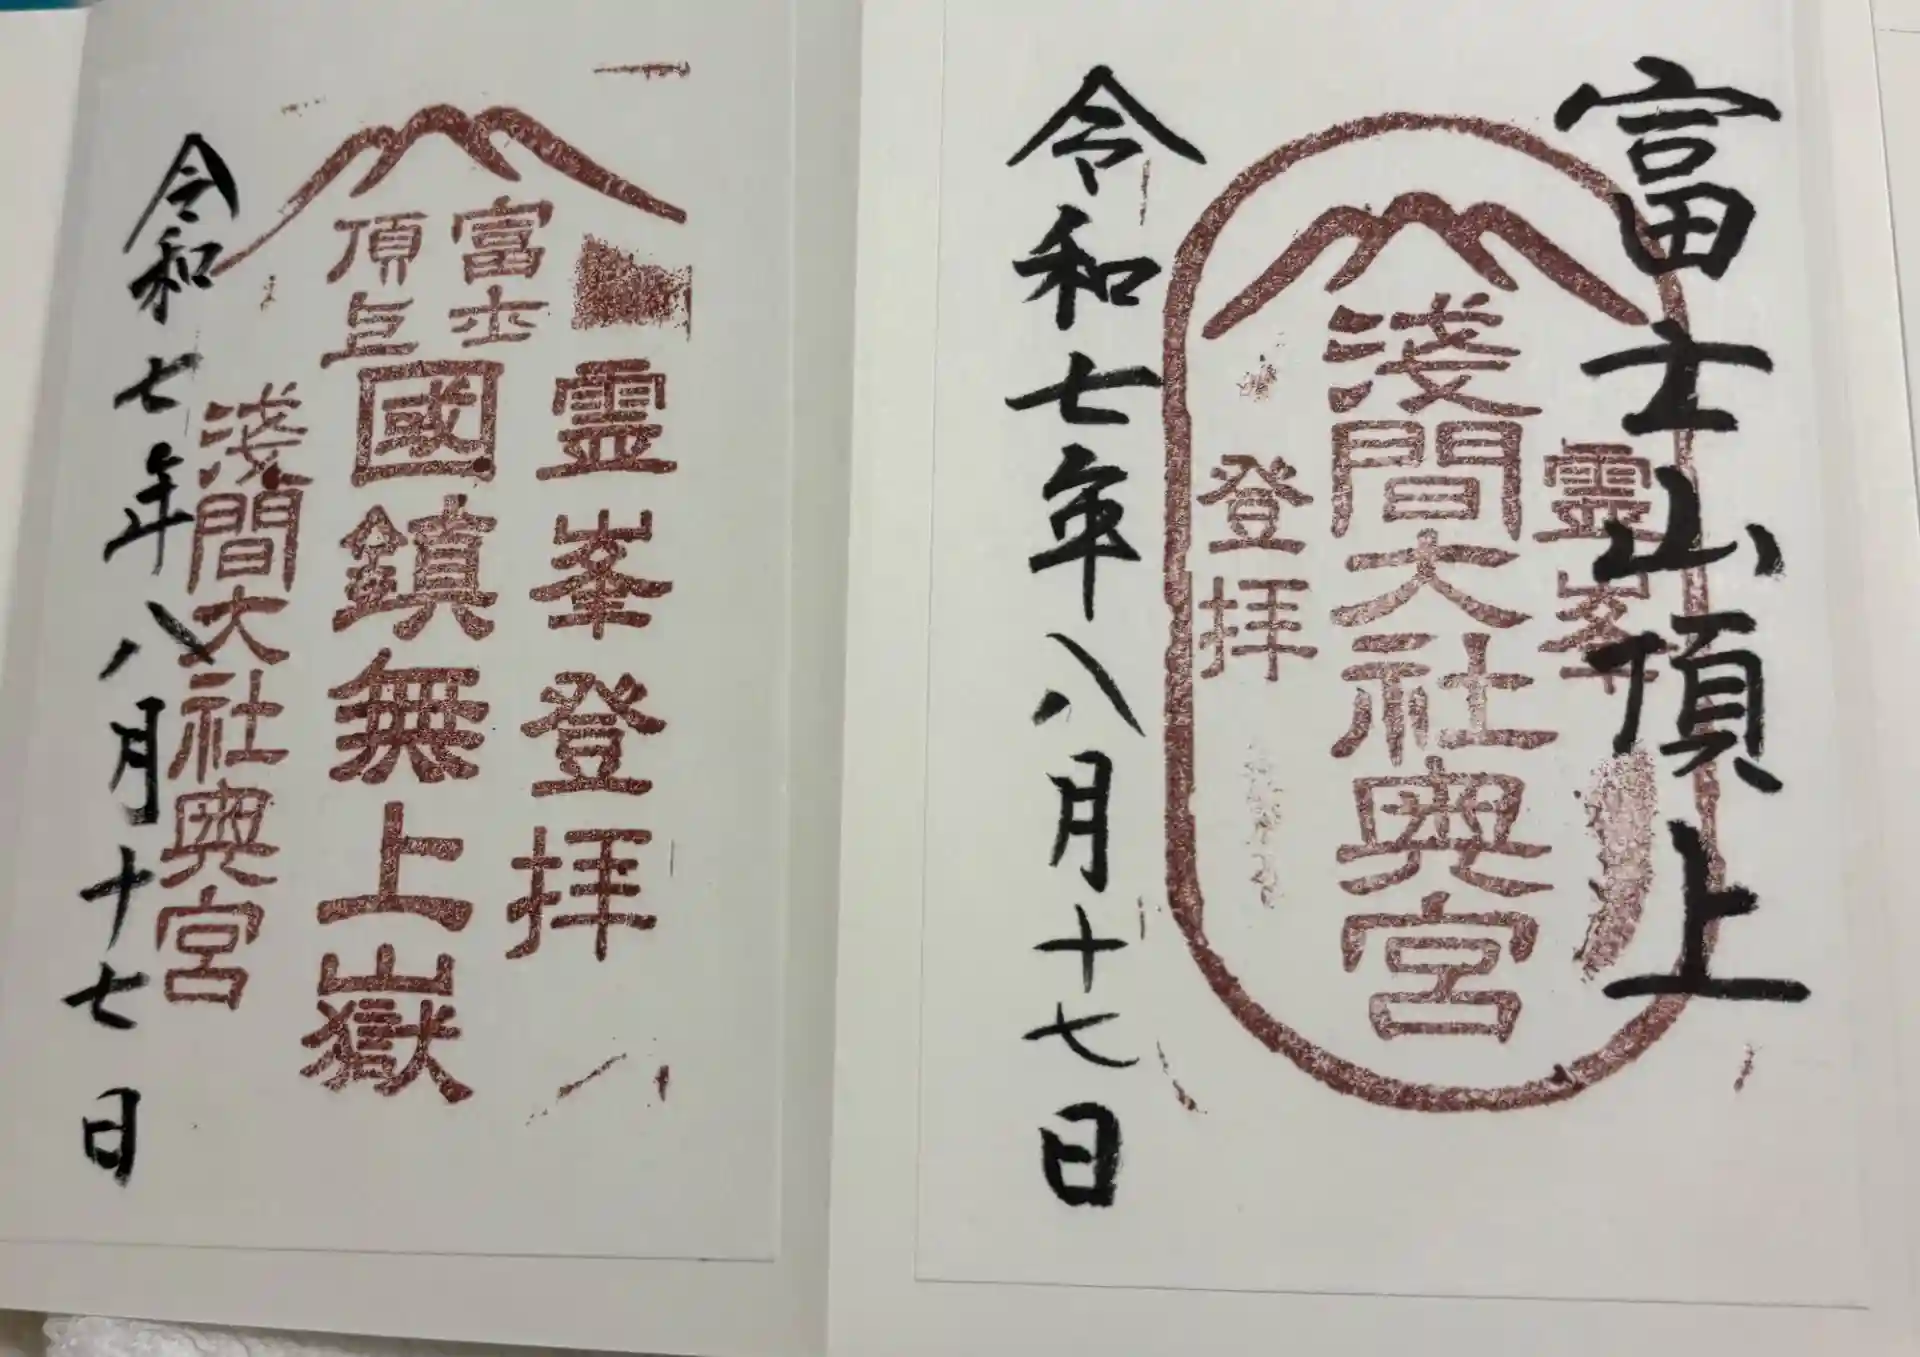 富士山頂上
霊峯
浅間大社奥宮
登拝
令和七年八月十七日
霊峯登拝
富士
頂上
國鎮無上嶽
浅間大社奥宮
令和七年八月十七日